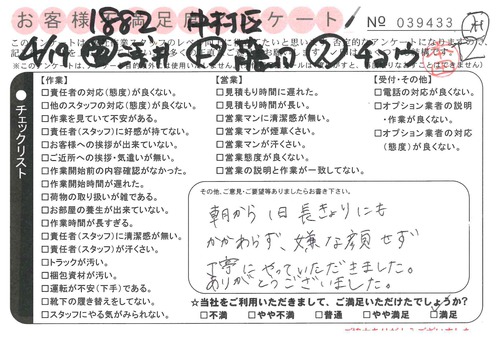 お客様満足度アンケート!
1882 中村区
No 039433
4/19
【作業】
□責任者の対応(態度)が良くない。
□他のスタッフの対応(態度)が良くない。
□作業を見ていて不安がある。
□責任者(スタッフ)に好感が持てない。
□お客様への挨拶が出来ていない。
□ご近所への挨拶・気遣いが無い。
□作業開始前の内容確認がなかった。
□作業開始時間が遅れた。
□荷物の取り扱いが雑である。
□お部屋の養生が出来ていない。
□作業時間が長すぎる。
□責任者(スタッフ)に清潔感が無い。
□責任者(スタッフ)が汗くさい。
□トラックが汚い。
□梱包資材が汚い。
□運転が不安(下手)である。
□靴下の履き替えをしてない。
□スタッフにやる気がみられない。
【営業】
□見積もり時間に遅れた。
□見積もり時間が長い。
□営業マンに清潔感が無い。
□営業マンが煙草くさい。
□営業マンが汗くさい。
□営業態度が良くない。
□営業の説明と作業が一致してない。
【受付・その他】
□電話の対応が良くない。
□オプション業者の説明
・作業が良くない。
□オプション業者の対応
(態度)が良くない。
チェックリスト
その他、ご意見・ご要望等ありましたらお書き下さい。
朝から1日長きょりにも
かかわらず、嫌な顔せず
丁寧にやっていただきました。
ありがとうございました。
☆当社をご利用いただきまして、ご満足いただけたでしょうか?
□不満 □やや不満 □普通 □やや満足 □満足